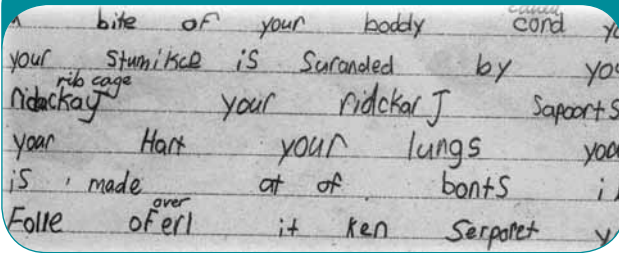 bite of your boddy cord
your Stumikce is Suranded by yo
rib cage
ridackaJ your ridckar J Sapoorts
your Hart your lungs you
is made at of bonts i
over
Folle oferl it ken Serporet y